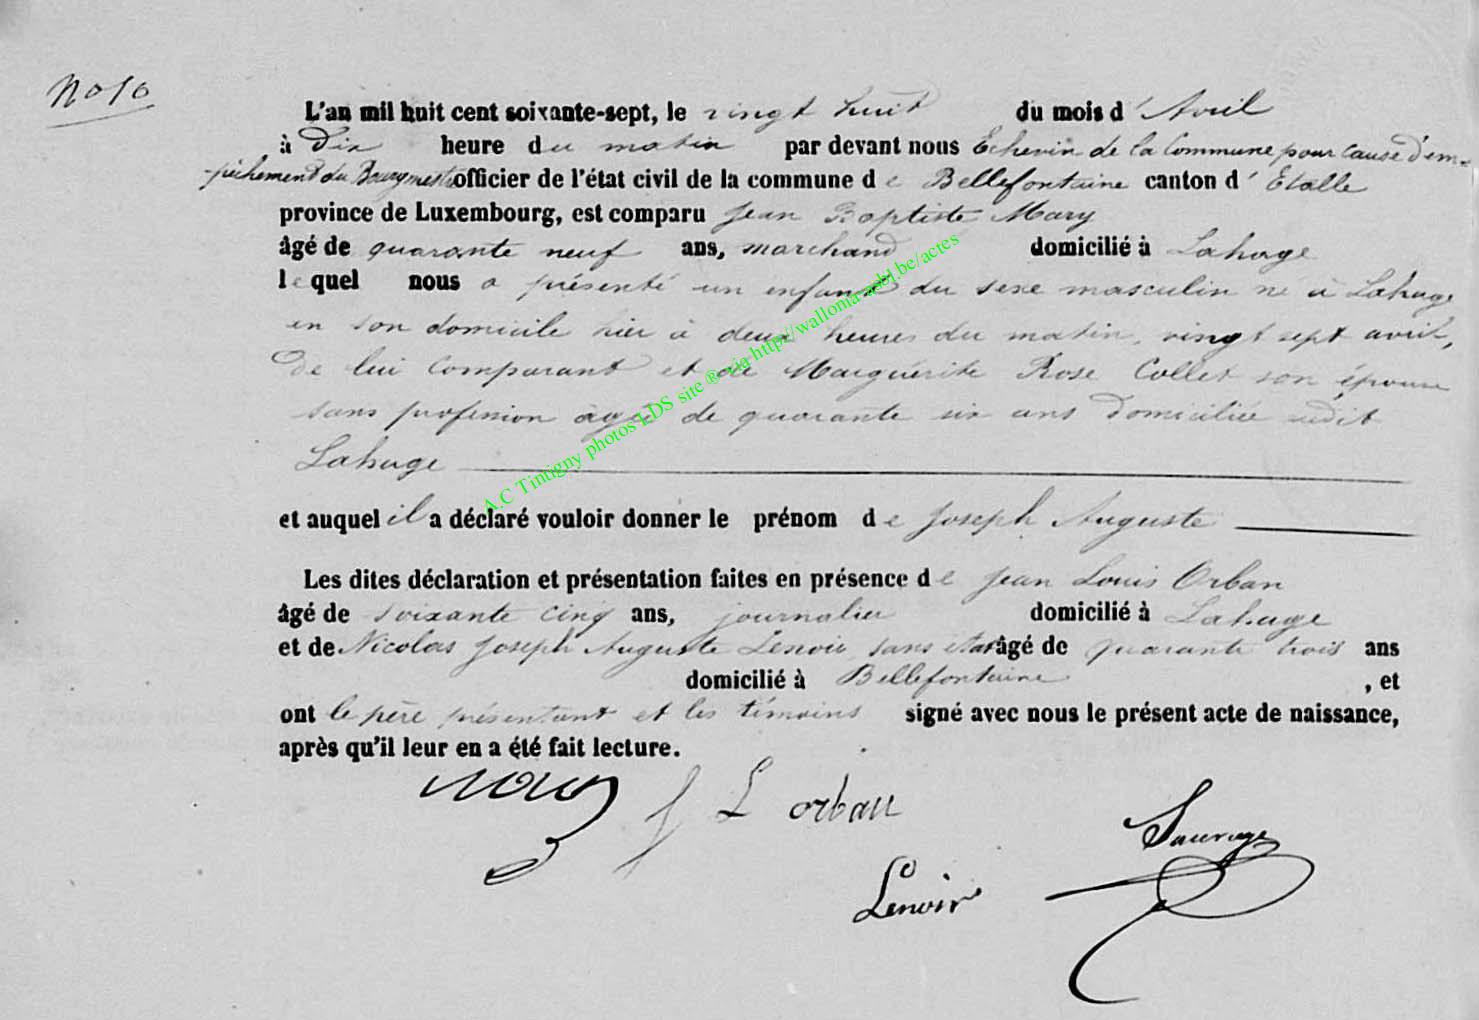 No 10
L'an mil huit cent soixante-sept, le vingt huit du mois d'Avril
à Dix heure du matin par devant nous Echevin de la Commune pour cause d'em-
pêchement du Bourgmestre officier de l'état civil de la commune de Bellefontaine canton d'Etalle
province de Luxembourg, est comparu Jean Baptiste Mary
âgé de quarante neuf ans, marchand domicilié à Lahage
lequel nous a présenté un enfant du sexe masculin né à Lahage
en son domicile hier à deux heures du matin, vingt sept avril,
de lui comparant et de Marguérite Rose Collet son épouse
sans profession âgé de quarante six ans domiciliée audit
Lahage
et auquel il a déclaré vouloir donner le prénom de Joseph Auguste
Les dites déclaration et présentation faites en présence de Jean Louis Orban
âgé de soixante cinq ans, journalier domicilié à Lahage
et de Nicolas Joseph Auguste Lenoir, sans état âgé de quarante trois ans
domicilié à Bellefontaine, et
ont le père présentant et les témoins signé avec nous le présent acte de naissance,
après qu'il leur en a été fait lecture.
J L orban
Sauvage
Lenoir
A.C Tintigny photos LDS site ® via http://wallonia-asbl.be/actes